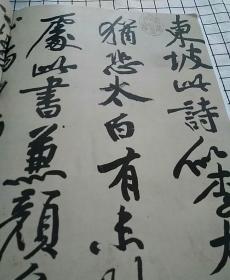 東坡此詩似李太
猶恐太白有未到
處此書兼顏